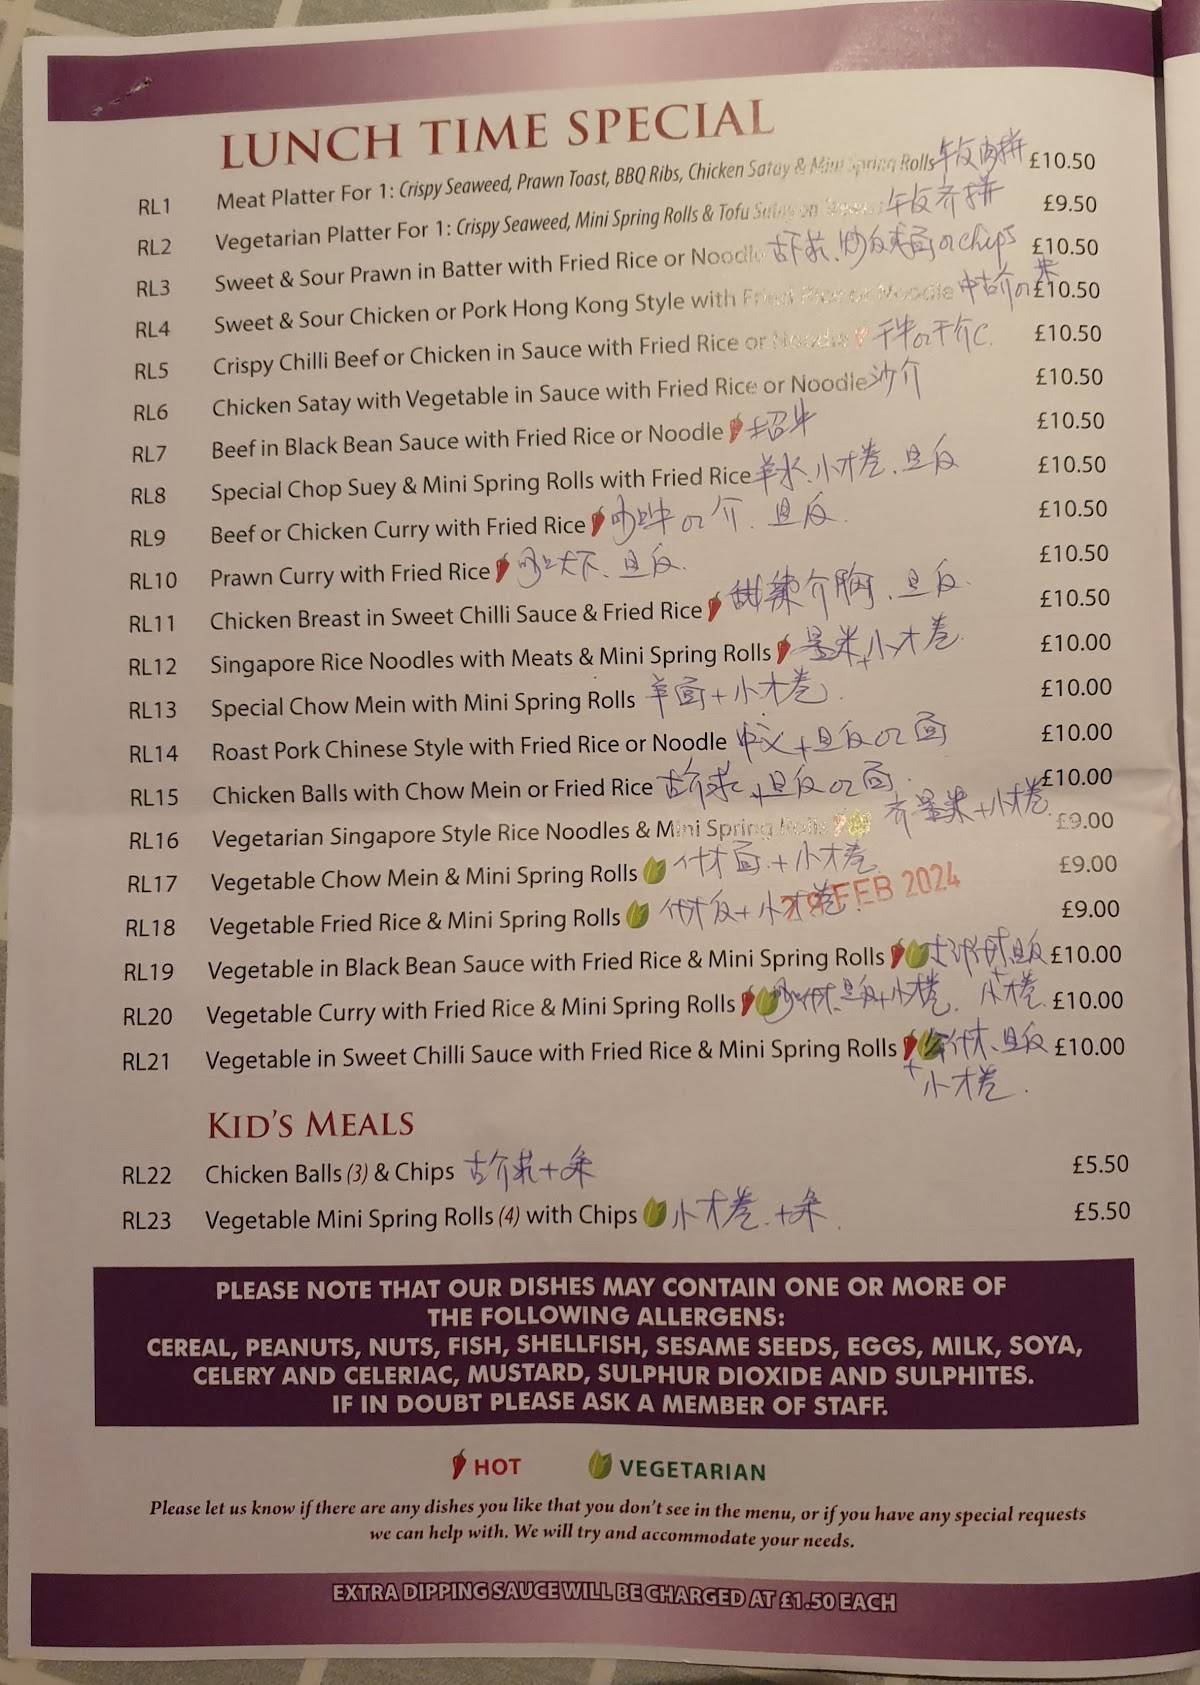 LUNCH TIME SPECIAL
RL1 Meat Platter For 1: Crispy Seaweed, Prawn Toast, BBQ Ribs, Chicken Satay & Mini Spring Rolls 午反肉拼 £10.50
RL2 Vegetarian Platter For 1: Crispy Seaweed, Mini Spring Rolls & Tofu 午反齐拼 £9.50
RL3 Sweet & Sour Prawn in Batter with Fried Rice or Noodle or chips £10.50
RL4 Sweet & Sour Chicken or Pork Hong Kong Style with Fried Rice or Noodle £10.50
RL5 Crispy Chilli Beef or Chicken in Sauce with Fried Rice or Noodle 干牛or干介 £10.50
RL6 Chicken Satay with Vegetable in Sauce with Fried Rice or Noodle 沙介 £10.50
RL7 Beef in Black Bean Sauce with Fried Rice or Noodle £10.50
RL8 Special Chop Suey & Mini Spring Rolls with Fried Rice 小才卷. 旦反 £10.50
RL9 Beef or Chicken Curry with Fried Rice or 介. 旦反. £10.50
RL10 Prawn Curry with Fried Rice 旦反. £10.50
RL11 Chicken Breast in Sweet Chilli Sauce & Fried Rice 甜辣介胸. 旦反. £10.50
RL12 Singapore Rice Noodles with Meats & Mini Spring Rolls 星米+小才卷. £10.00
RL13 Special Chow Mein with Mini Spring Rolls 羊面+小才卷. £10.00
RL14 Roast Pork Chinese Style with Fried Rice or Noodle 中义+旦反or面 £10.00
RL15 Chicken Balls with Chow Mein or Fried Rice 古介求+旦反or面. £10.00
RL16 Vegetarian Singapore Style Rice Noodles & Mini Spring Rolls 齐星米+小才卷. £9.00
RL17 Vegetable Chow Mein & Mini Spring Rolls 什才面.+小才卷. £9.00
FEB 2024
RL18 Vegetable Fried Rice & Mini Spring Rolls 什才反+小才卷. £9.00
RL19 Vegetable in Black Bean Sauce with Fried Rice & Mini Spring Rolls 旦反 £10.00
+小才卷.
RL20 Vegetable Curry with Fried Rice & Mini Spring Rolls 旦反+小才卷. £10.00
RL21 Vegetable in Sweet Chilli Sauce with Fried Rice & Mini Spring Rolls 什才、旦反 £10.00
+小才卷.
KID'S MEALS
RL22 Chicken Balls (3) & Chips 古介求+条 £5.50
RL23 Vegetable Mini Spring Rolls (4) with Chips 小才卷.+条. £5.50
PLEASE NOTE THAT OUR DISHES MAY CONTAIN ONE OR MORE OF
THE FOLLOWING ALLERGENS:
CEREAL, PEANUTS, NUTS, FISH, SHELLFISH, SESAME SEEDS, EGGS, MILK, SOYA,
CELERY AND CELERIAC, MUSTARD, SULPHUR DIOXIDE AND SULPHITES.
IF IN DOUBT PLEASE ASK A MEMBER OF STAFF.
HOT VEGETARIAN
Please let us know if there are any dishes you like that you don't see in the menu, or if you have any special requests
we can help with. We will try and accommodate your needs.
EXTRA DIPPING SAUCE WILL BE CHARGED AT £1.50 EACH